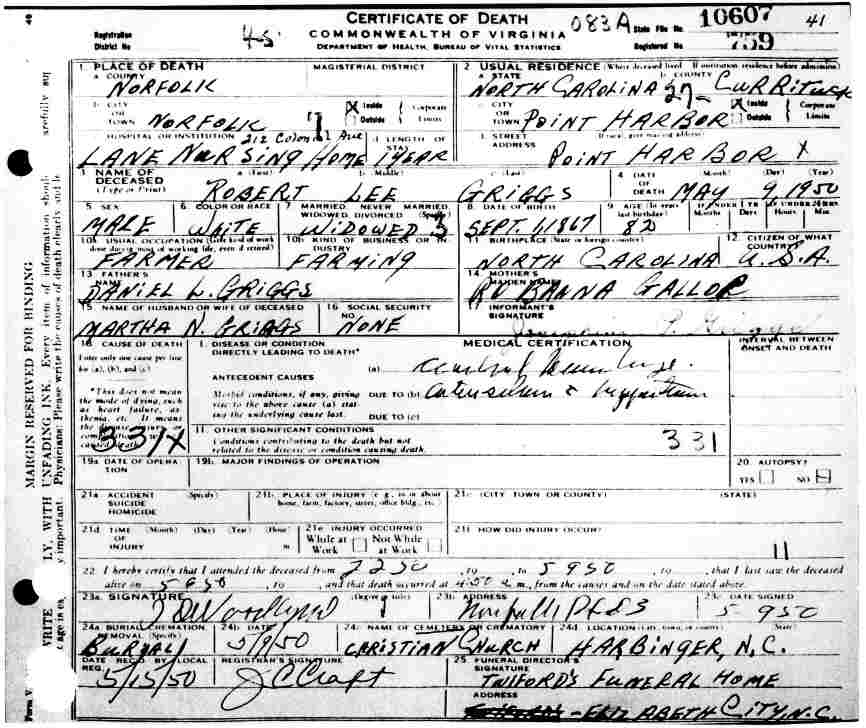 CERTIFICATE OF DEATH
COMMONWEALTH OF VIRGINIA
DEPARTMENT OF HEALTH, BUREAU OF VITAL STATISTICS
Registration District No 45 083A State File No. 10607 41
Registered No 759
1. PLACE OF DEATH
a COUNTY NORFOLK MAGISTERIAL DISTRICT
b CITY OR TOWN NORFOLK X Inside Outside Corporate Limits
HOSPITAL OR INSTITUTION 212 Colonial Ave
LANE NURSING HOME
d LENGTH OF STAY 1 YEAR
2. USUAL RESIDENCE (Where deceased lived. If institution residence before admission)
a STATE NORTH CAROLINA 27- b COUNTY CURRITUCK
c CITY OR TOWN POINT HARBOR X Inside Outside Corporate Limits
d. STREET ADDRESS (If rural, give mailing address) POINT HARBOR X
3. NAME OF DECEASED (Type or Print) a (First) b (Middle) c (Last)
ROBERT LEE GRIGGS
4 DATE OF DEATH (Month) (Day) (Year)
MAY 9 1950
5 SEX MALE
6 COLOR OR RACE WHITE
7 MARRIED, NEVER MARRIED, WIDOWED, DIVORCED (Specify) WIDOWED 3
8 DATE OF BIRTH SEPT. 1, 1867
9 AGE (In years last birthday) 82 IF UNDER 1 YR Months Days IF UNDER 24 HRS Hours Min.
10a USUAL OCCUPATION (Give kind of work done during most of working life, even if retired) FARMER
10b KIND OF BUSINESS OR INDUSTRY FARMING
11 BIRTHPLACE (State or foreign country) NORTH CAROLINA
12 CITIZEN OF WHAT COUNTRY? U.S.A.
13 FATHER'S NAME DANIEL L. GRIGGS
14 MOTHER'S MAIDEN NAME GALLOP
15 NAME OF HUSBAND OR WIFE OF DECEASED MARTHA N. GRIGGS
16 SOCIAL SECURITY NO. NONE
17 INFORMANT'S SIGNATURE
18 CAUSE OF DEATH
Enter only one cause per line for (a), (b), and (c)
*This does not mean the mode of dying, such as heart failure, asthenia, etc. It means the disease, injury or
331X
MEDICAL CERTIFICATION
INTERVAL BETWEEN ONSET AND DEATH
I. DISEASE OR CONDITION DIRECTLY LEADING TO DEATH*
(a)
ANTECEDENT CAUSES
Morbid conditions, if any, giving rise to the above cause (a) stating the underlying cause last.
DUE TO (b)
DUE TO (c)
II. OTHER SIGNIFICANT CONDITIONS
Conditions contributing to the death but not related to the disease or condition causing death.
331
19a DATE OF OPERATION
19b. MAJOR FINDINGS OF OPERATION
20. AUTOPSY?
YES NO
21a ACCIDENT SUICIDE HOMICIDE (Specify)
21b. PLACE OF INJURY (e.g., in or about home, farm, factory, street, office bldg., etc.)
21c. (CITY TOWN OR COUNTY) (STATE)
21d. TIME OF INJURY (Month) (Day) (Year) (Hour) m
21e INJURY OCCURRED While at Work Not While at Work
21f. HOW DID INJURY OCCUR?
11
22 I hereby certify that I attended the deceased from , to 5 9 50 , that I last saw the deceased
alive on , and that death occurred at m., from the causes and on the date stated above.
23a. SIGNATURE (Degree or title)
23b. ADDRESS
23c. DATE SIGNED 5 9 50
24a BURIAL, CREMATION, REMOVAL (Specify) BURIAL
24b. DATE 5/9/50
24c NAME OF CEMETERY OR CREMATORY CHRISTIAN CHURCH
24d LOCATION (City, town, or county) (State) HARBINGER, N.C.
DATE REC'D BY LOCAL REG. 5/15/50
REGISTRAR'S SIGNATURE J C Craft
25 FUNERAL DIRECTOR'S SIGNATURE TWIFORD'S FUNERAL HOME
ADDRESS ELIZABETH CITY N.C.
MARGIN RESERVED FOR BINDING
LY, WITH UNFADING INK. Every item of information shoul
y important. Physicians: Please write the causes of death clearly and le
Form V